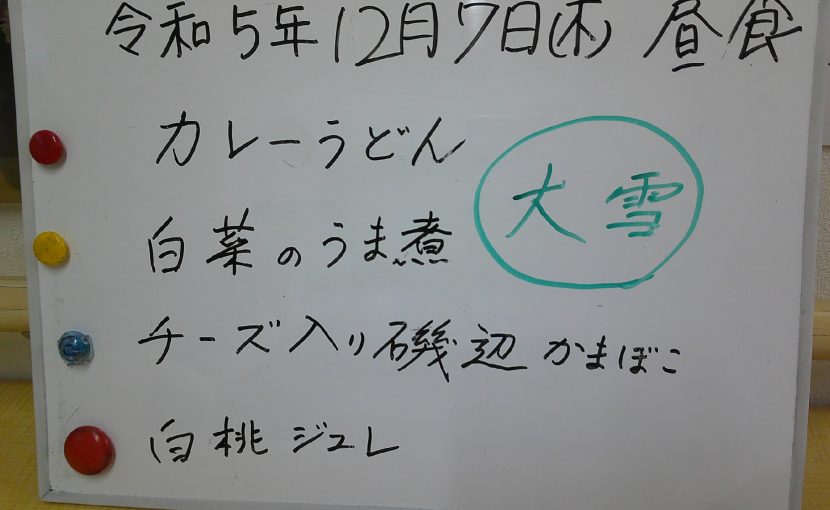 令和5年12月7日(木) 昼食
カレーうどん
大雪
白菜のうま煮
チーズ入り磯辺かまぼこ
白桃ジュレ